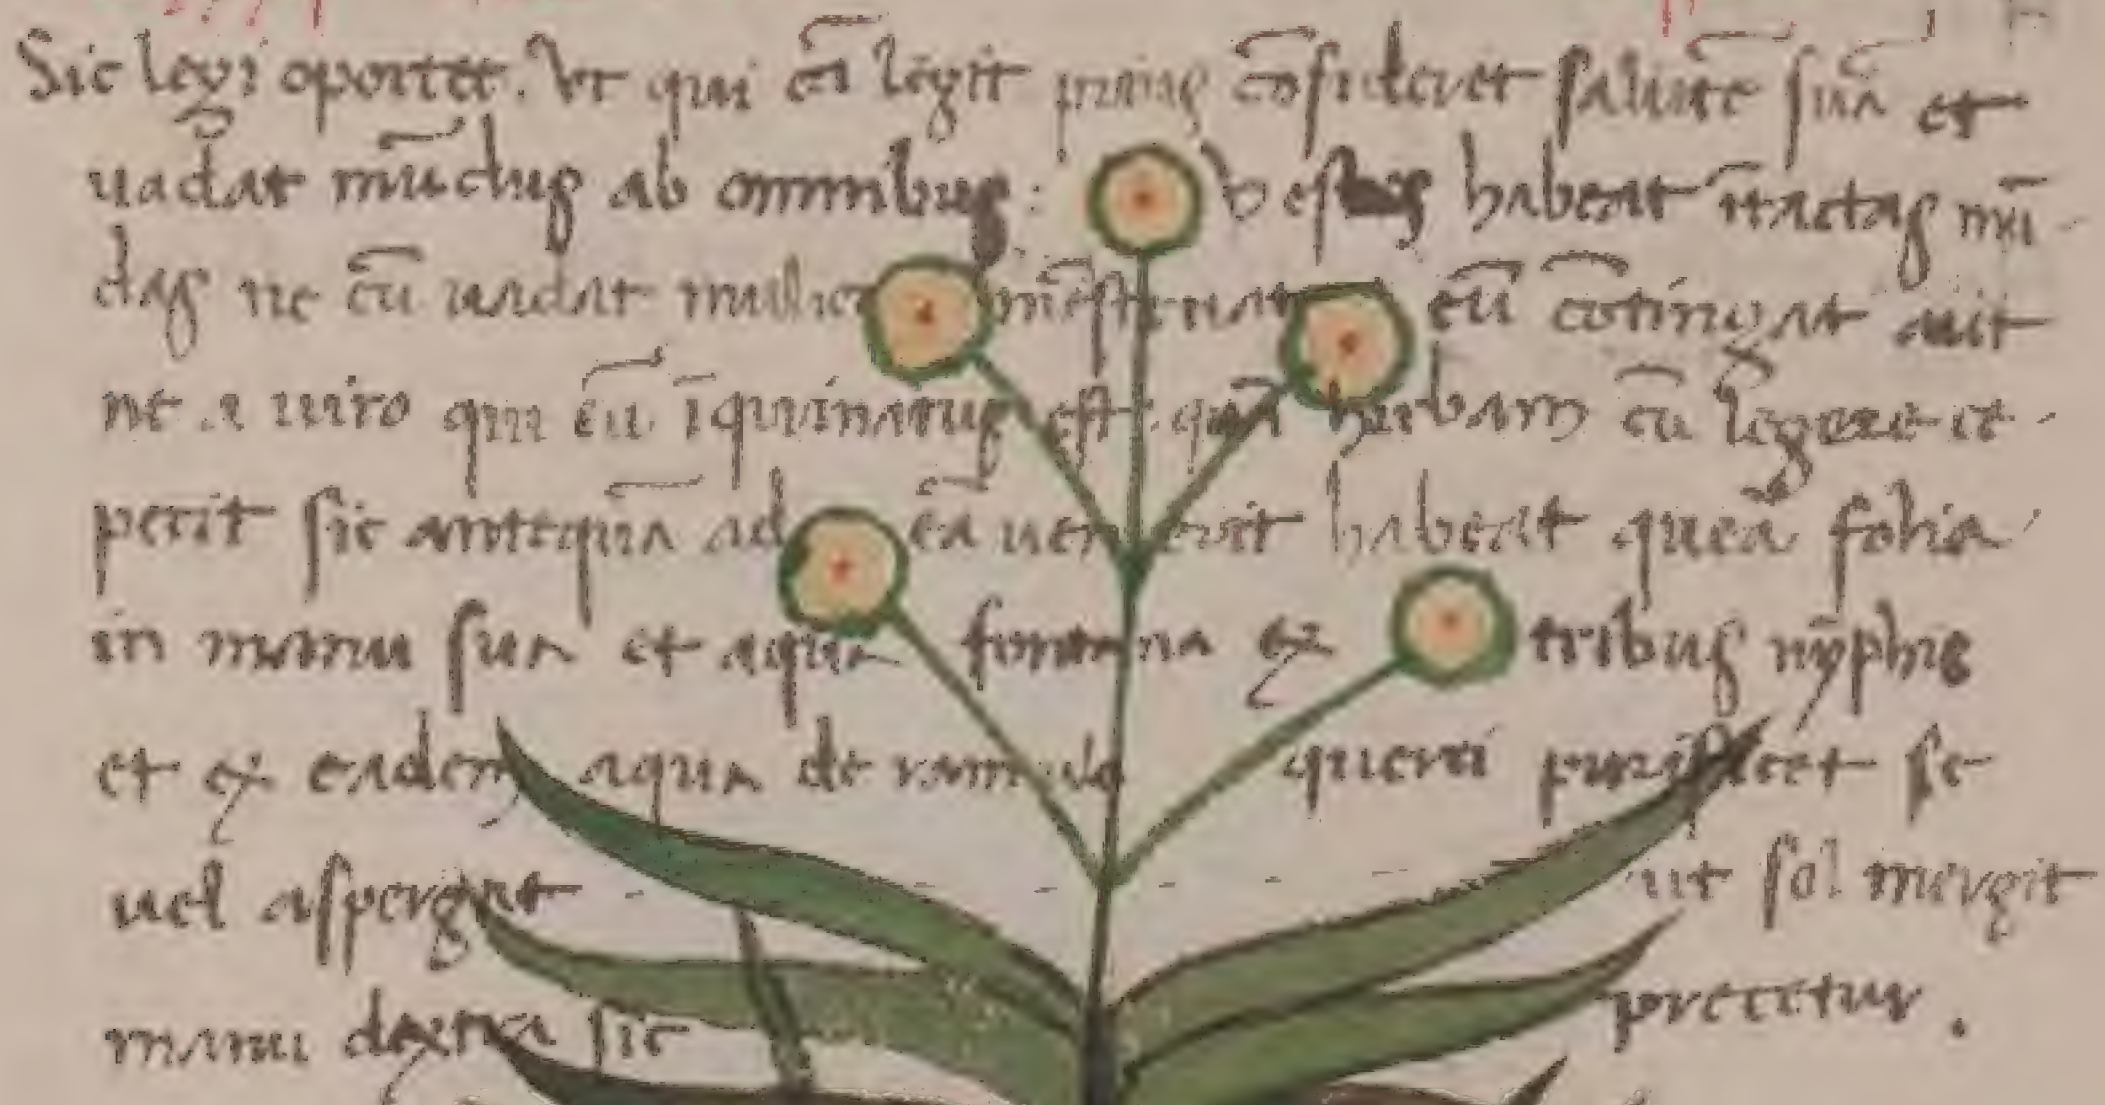 Sic legi oportet. Ut qui eā legit prius cōsideret salutē suā et
uadat mūdus ab omnibus: Vestes habeat ītactas mū-
das ne cū uadat mulier mēstruata eū cōtingat aut
ne a uiro qui eū īquinatus est. quā herbam cū legere ce-
perit sic anteqūa ad eā uenerit habeat queā folia
in manu sua et aqua fontana ex tribus nȳphis
et ex eadem aqua de ramulo querci purificet se
uel aspergat ut sol mergit
manu dextra sic precetur.